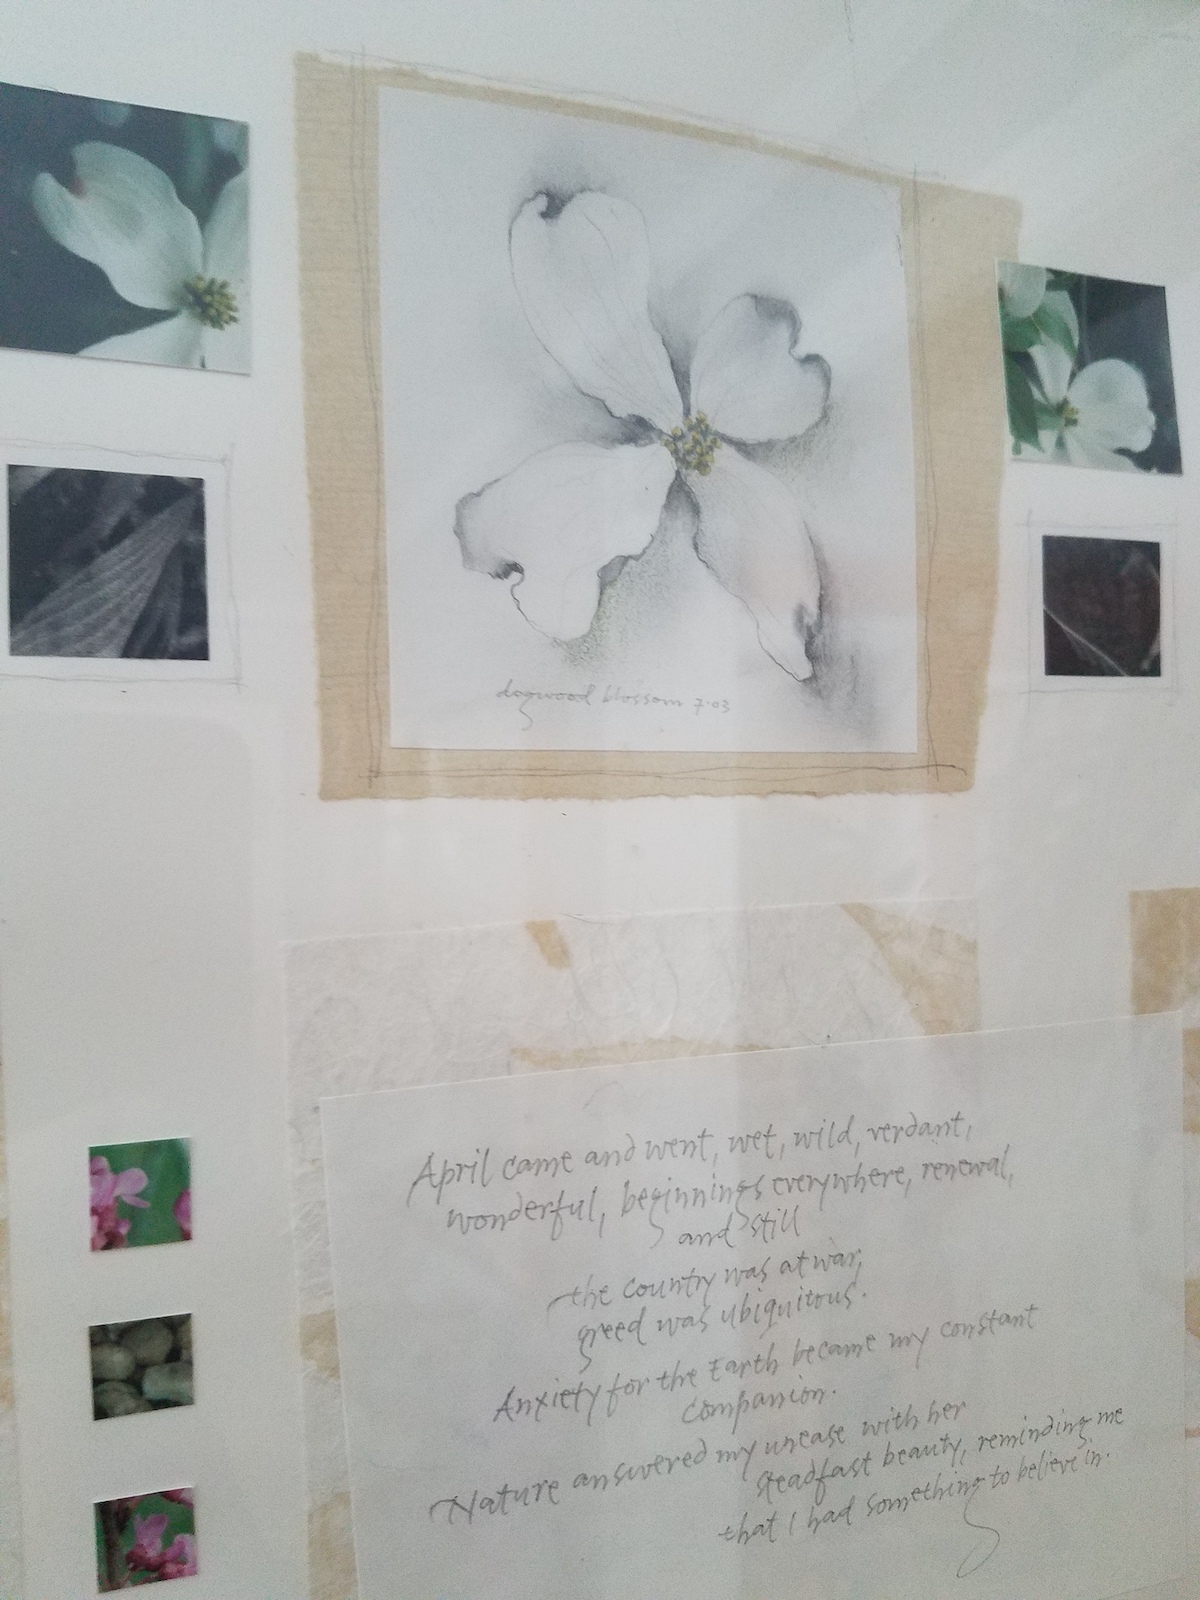 dogwood blossom 7.03
April came and went, wet, wild, verdant,
wonderful, beginnings everywhere, renewal,
and still
the country was at war,
greed was ubiquitous.
Anxiety for the Earth became my constant
companion.
Nature answered my unease with her
steadfast beauty, reminding me
that I had something to believe in.